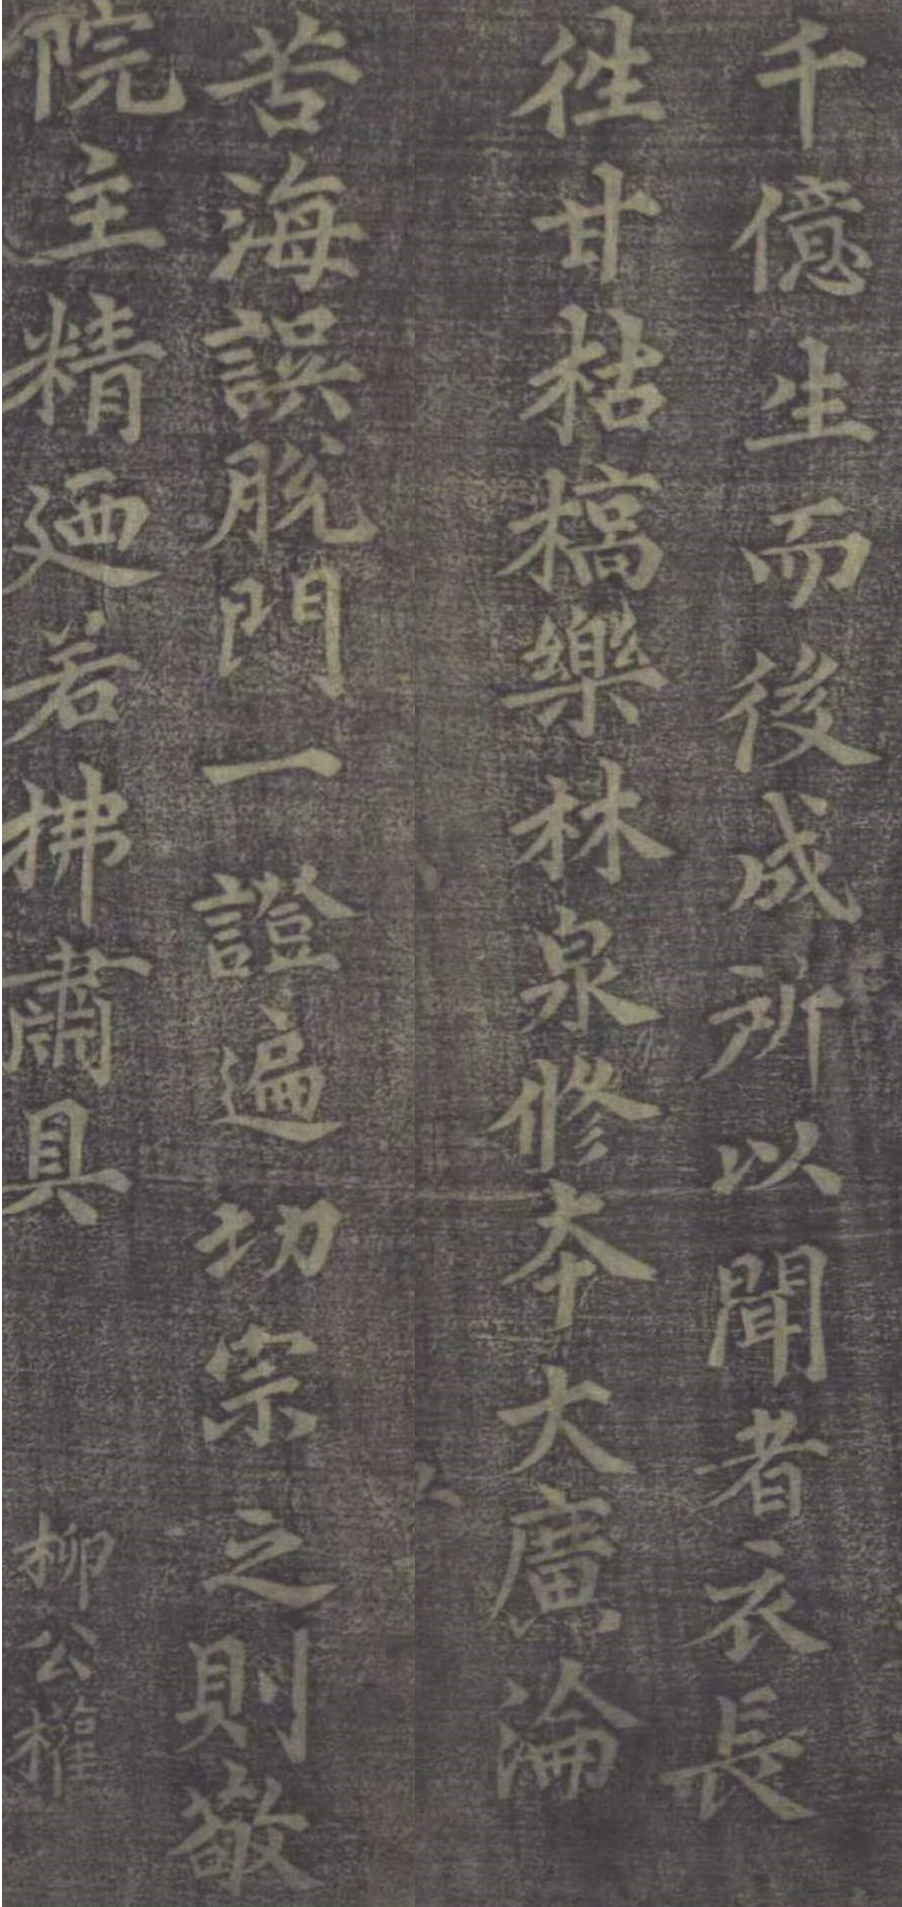 千億生而後成所以聞者衣長
徃甘枯槁樂林泉修夲大廣淪
苦海誤脫門一證遍切宗之則敬
院主精廼若拂肅具
柳公權